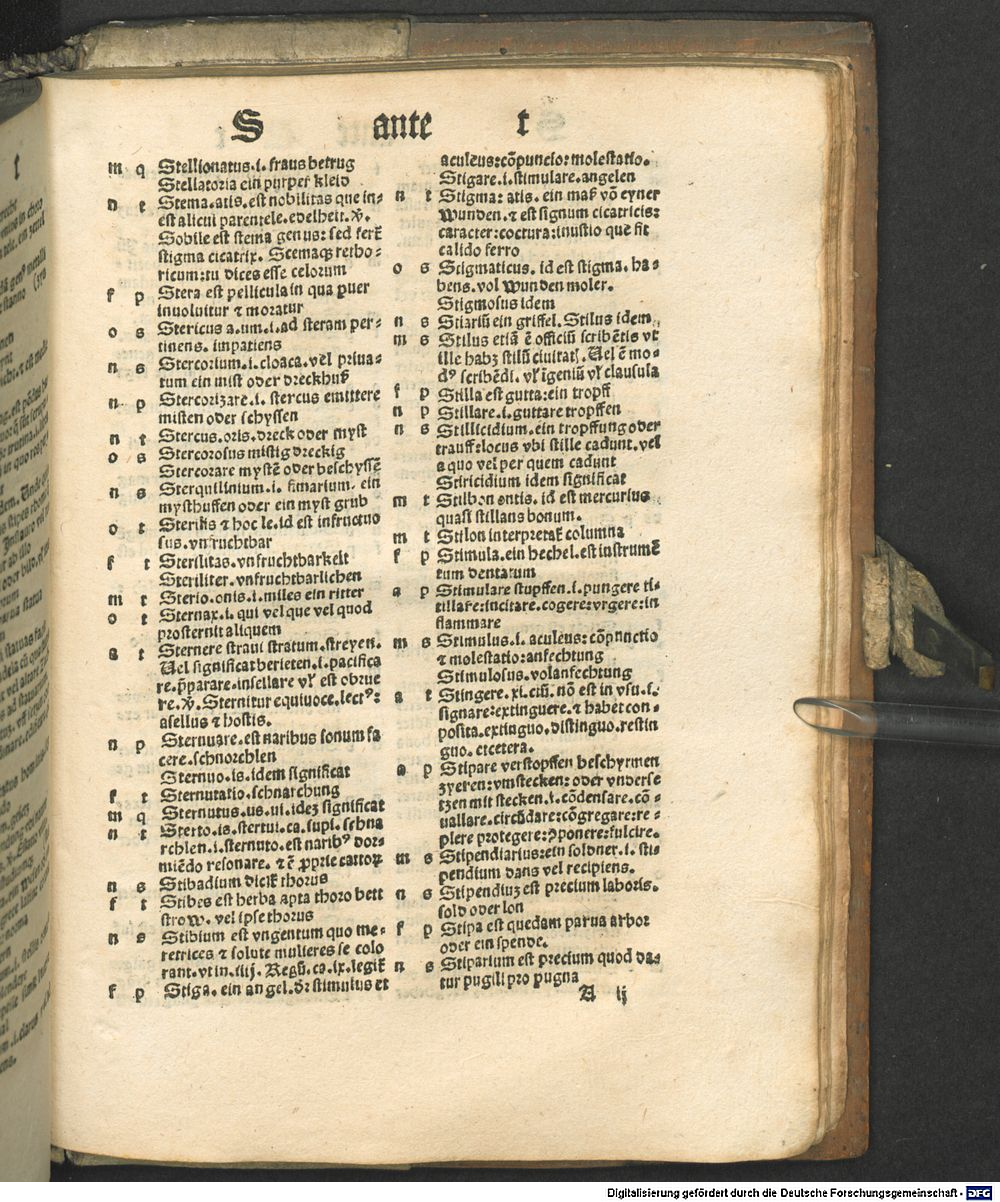 S ante t
m q Stellionatus.i. fraus betrug
Stellatoria ein purper kleid
n t Stema.atis.est nobilitas que in⸗
est alicui parentele.edelheit.
Nobile est stema genus: sed fert̄
stigma cicatrix. Scemaqꝫ retho⸗
ricum:tu dices esse celorum
f p Stera est pellicula in qua puer
inuoluitur ⁊ moratur
o s Stericus a.um.i.ad steram per⸗
tinens. impatiens
n s Stercorium.i.cloaca.vel priua⸗
tum ein mist oder dreckhuß
n p Stercorizare.i. stercus emittere
misten oder schyssen
n t Stercus.oris.dreck oder myst
o s Stercorosus mistig dreckig
Stercorare mystē oder beschyssē
n s Sterquilinium.i. fimarium. ein
mysthuffen oder ein myst grub
o t Sterilis ⁊ hoc le.id est infructuo
sus.vnfruchtbar
f t Sterilitas.vnfruchtbarkeit
Steriliter.vnfruchtbarlichen
m t Sterio.onis.i.miles ein ritter
o t Sternax.i. qui vel que vel quod
prosternit aliquem
a t Sternere straui stratum.streyen.
Uel significat berieten.i.pacifica
re.p̄parare.insellare vl̓ est obrue
re. Sternitur equiuoce.lectꝰ:
asellus ⁊ hostis.
n p Sternuare.est naribus sonum fa
cere.schnorchlen
Sternuo.is.idem significat
f t Sternutatio.schnarchung
m q Sternutus.us.ui.idez significat
n t Sterto.is.stertui.ca.supi. schna
rchlen.i.sternuto.est naribꝰ dor⸗
miēdo resonare. ⁊ ē ꝓprie cattoꝝ
n s Stibadium dicit̄ thorus
f t Stibes est herba apta thoro bett
strow. vel ipse thorus
n s Stibium est vngentum quo me⸗
retrices ⁊ solute mulieres se colo
rant.vt in.iiij. Regū.ca.ix.legit̄
f p Stiga. ein angel.dr̄ stimulus et
aculeus:cōpunctio:molestatio.
Stigare.i.stimulare.angelen
n t Stigma:atis. ein maß vō eyner
wunden.⁊ est signum cicatricis:
caracter:coctura:inustio que fit
calido ferro
o s Stigmaticus. id est stigma. ha⸗
bens.vol wunden moler.
Stigmosus idem
n s Stiariū ein griffel. Stilus idem
m s Stilus etiā ē officiū scribētis vt
ille habꝫ stilū ciuitatꝭ. Uel ē mo⸗
dꝰ scribēdi. vl̓ īgeniū vl̓ clausula
f p Stilla est gutta:ein tropff
n p Stillare.i.guttare tropffen
n s Stillicidium.ein tropffung oder
trauff:locus vbi stille cadunt.vel
a quo vel per quem cadunt
Stiricidium idem significat
m t Stilbon ontis. id est mercurius
quasi stillans bonum.
m t Stilon interpretat̄ columna
f p Stimula.ein hechel.est instrumē
tum dentatum
a p Stimulare stupffen.i.pungere ti⸗
tillare:incitare.cogere:vrgere:in
flammare
m s Stimulus.i. aculeus: cōpunctio
⁊ molestatio:anfechtung
Stimulosus.volanfechtung
a t Stingere.xi.ctū. nō est in vsu.i.
signare:extinguere.⁊ habet con⸗
posita.extinguo.distinguo.restin
guo. etcetera.
a p Stipare verstopffen beschyrmen
zyeren:vmstecken: oder vnderse
tzen mit stecken.i.cōdensare.cō⸗
uallare.circūdare:cōgregare:re⸗
plere protegere:ꝯponere:fulcire.
m s Stipendiarius:ein soldner.i. sti⸗
pendium dans vel recipiens.
n s Stipendiuꝫ est precium laboris.
sold oder lon
f p Stipa est quedam parua arbor
oder ein spende.
n s Stiparium est precium quod da⸗
tur pugili pro pugna
A ij
Digitalisierung gefördert durch die Deutsche Forschungsgemeinschaft - DFG